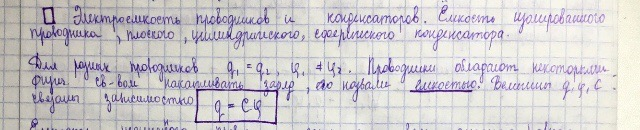 Электроемкость проводников и конденсаторов. Емкость изолированного
проводника, плоского, цилиндрического, сферического конденсатора.
Для разных проводников q₁ = q₂, φ₁ ≠ φ₂. Проводники обладают некоторым
физич. св-вом накапливать заряд, его назвали емкостью. Величины q, φ, C
связаны зависимостью q = Cφ